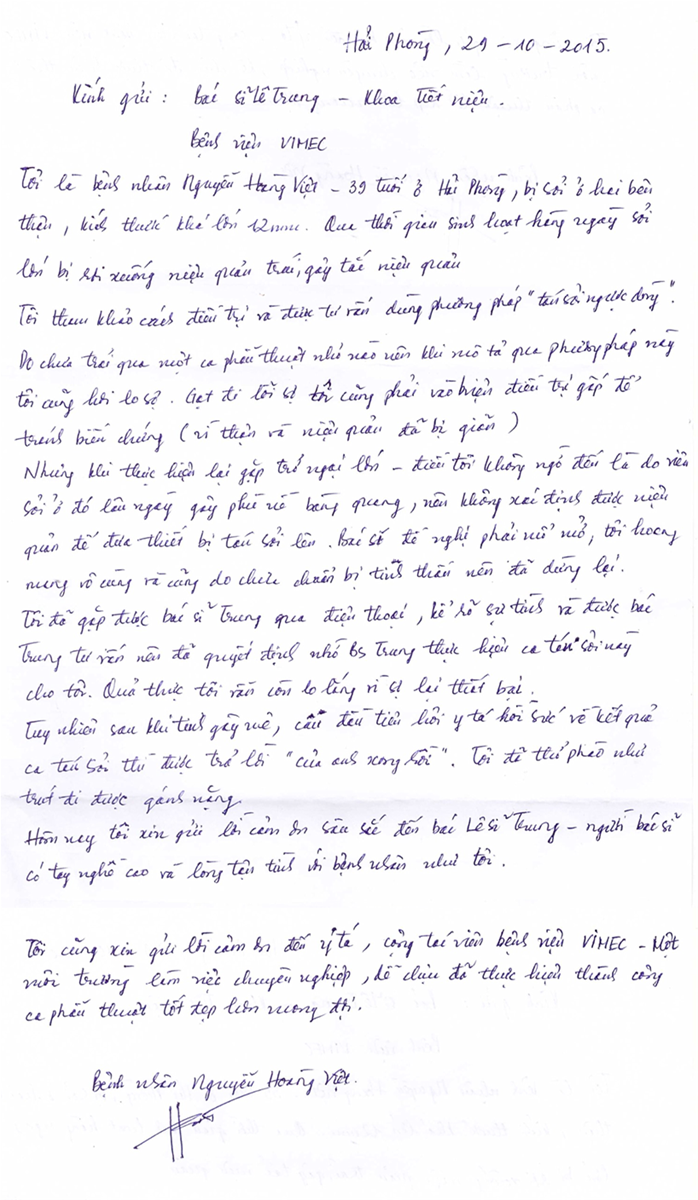 Hải Phòng, 29-10-2015.
Kính gửi: Bác sĩ Lê Trung - Khoa Tiết niệu.
Bệnh viện VIMEC
Tôi là bệnh nhân Nguyễn Hoàng Việt - 39 tuổi ở Hải Phòng, bị sỏi ở hai bên
thận, kích thước khá lớn 12mm. Qua thời gian sinh hoạt hàng ngày sỏi
lớn bị rơi xuống niệu quản trái, gây tắc niệu quản
Tôi tham khảo cách điều trị và được tư vấn dùng phương pháp "tán sỏi ngược dòng".
Do chưa trải qua một ca phẫu thuật nhỏ nào nên khi mô tả qua phương pháp này
tôi cũng hơi lo sợ. Gạt đi nỗi sợ tôi cũng phải vào viện điều trị gấp để
tránh biến chứng (vì thận và niệu quản đã bị giãn)
Nhưng khi thực hiện lại gặp trở ngại lớn - điều tôi không ngờ đến là do viên
sỏi ở đó lâu ngày gây phù nề bàng quang, nên không xác định được niệu
quản để đưa thiết bị tán sỏi lên. Bác sĩ đề nghị phải mổ mở, tôi hoang
mang vô cùng và cũng do chưa chuẩn bị tinh thần nên đã dừng lại.
Tôi đã gặp được bác sĩ Trung qua điện thoại, kể rõ sự tình và được bác
Trung tư vấn nên đã quyết định nhờ BS Trung thực hiện ca tán sỏi này
cho tôi. Quả thực tôi vẫn còn lo lắng vì sợ lại thất bại.
Tuy nhiên sau khi tỉnh gây mê, câu đầu tiên hỏi y tá hồi sức về kết quả
ca tán sỏi thì được trả lời "của anh xong rồi". Tôi đã thở phào như
trút đi được gánh nặng.
Hôm nay tôi xin gửi lời cảm ơn sâu sắc đến bác Lê Sĩ Trung - người bác sĩ
có tay nghề cao và lòng tận tình với bệnh nhân như tôi.
Tôi cũng xin gửi lời cảm ơn đến y tá, cộng tác viên bệnh viện VIMEC - Một
môi trường làm việc chuyên nghiệp, dễ chịu đã thực hiện thành công
ca phẫu thuật tốt đẹp hơn mong đợi.
Bệnh nhân Nguyễn Hoàng Việt.